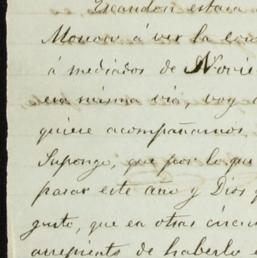 Escandon estara
Moncor á ver la
á mediados de Novie
esa misma via, voy
quiere acompañarnos.
Supongo, que por lo que
pasar este año y Dios
gusto, que en otras circun
arrepiento de haberlo